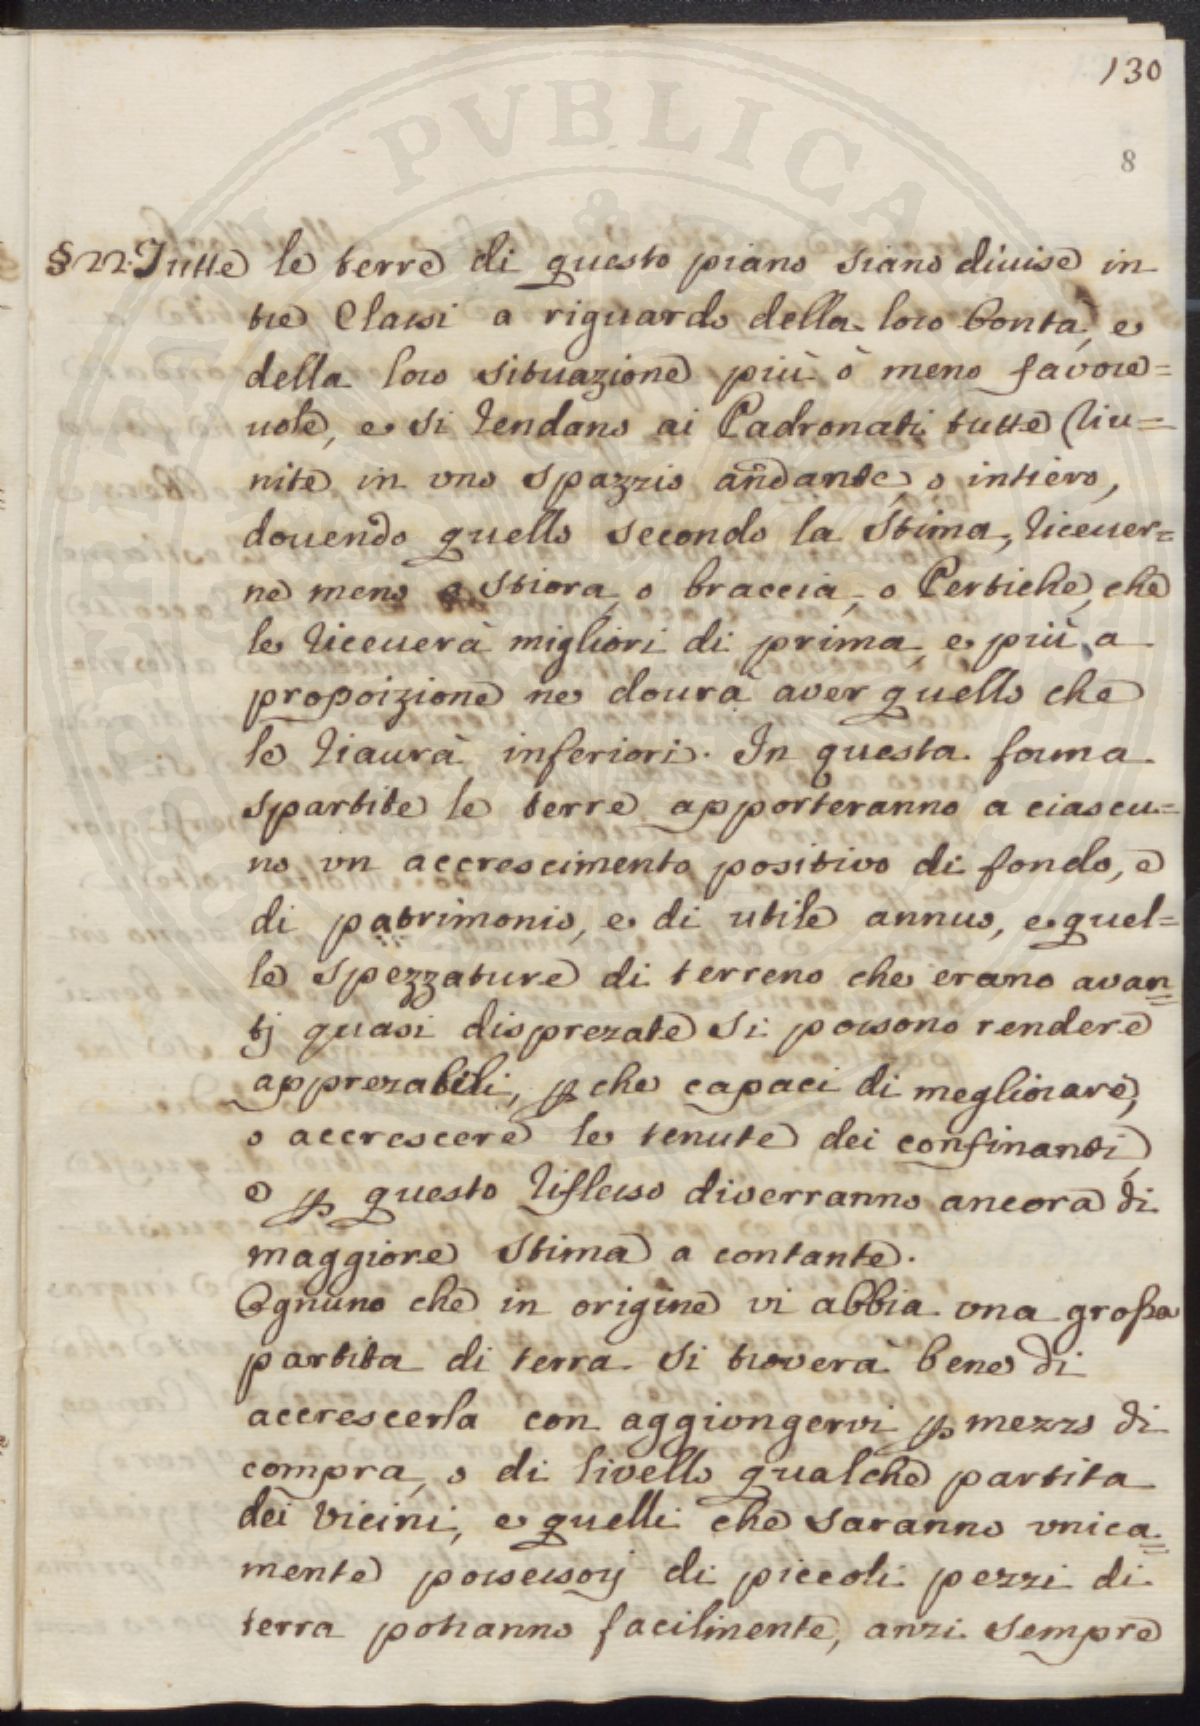 130
8
§ 22. Tutte le terre di questo piano siano diuise in
tre Classi a riguardo della loro bontà, e
della loro situazione più ò meno favore=
uole, e si rendano ai Padronati tutte riu=
nite in uno spazzio andante, o intiero,
douendo quello secondo la stima, riceuer=
ne meno o stiora, o braccia, o Pertiche, che
le riceuerà migliori di prima, e più a
proporzione ne dourà aver quello che
le riaurà inferiori. In questa forma
spartite le terre apporteranno a ciascu=
no vn accrescimento positivo di fondo, e
di patrimonio, e di utile annuo, e quel=
le spezzature di terreno che erano avan=
tj quasi disprezate si possono rendere
apprezabili, p che capaci di megliorare,
o accrescere le tenute dei confinanti,
e p questo riflesso diverranno ancora di
maggiore stima a contante.
Ognuno che in origine vi abbia una grossa
partita di terra si troverà bene di
accrescerla con aggiongervi p mezzo di
compra, o di livello qualche partita
dei vicini, e quelli che saranno vnica=
mente possessorj di piccoli pezzi di
terra potranno facilmente, anzi sempre
PVBLICA